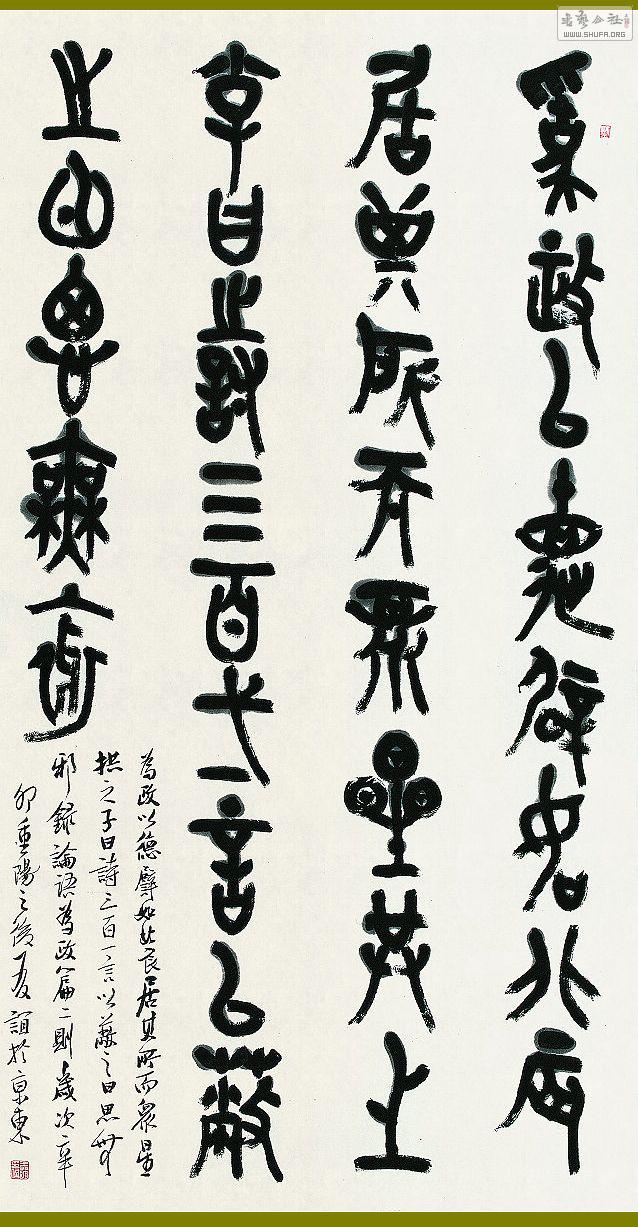 為政以德辟如北辰
居其所而眾星共之
子曰詩三百弌言以蔽
之曰思無邪
為政以德譬如北辰居其所而眾星
拱之子曰詩三百一言以蔽之曰思無
邪錄論語為政篇二則歲次辛
卯重陽之後夏誼於京東
书艺公社
WWW.SHUFA.ORG